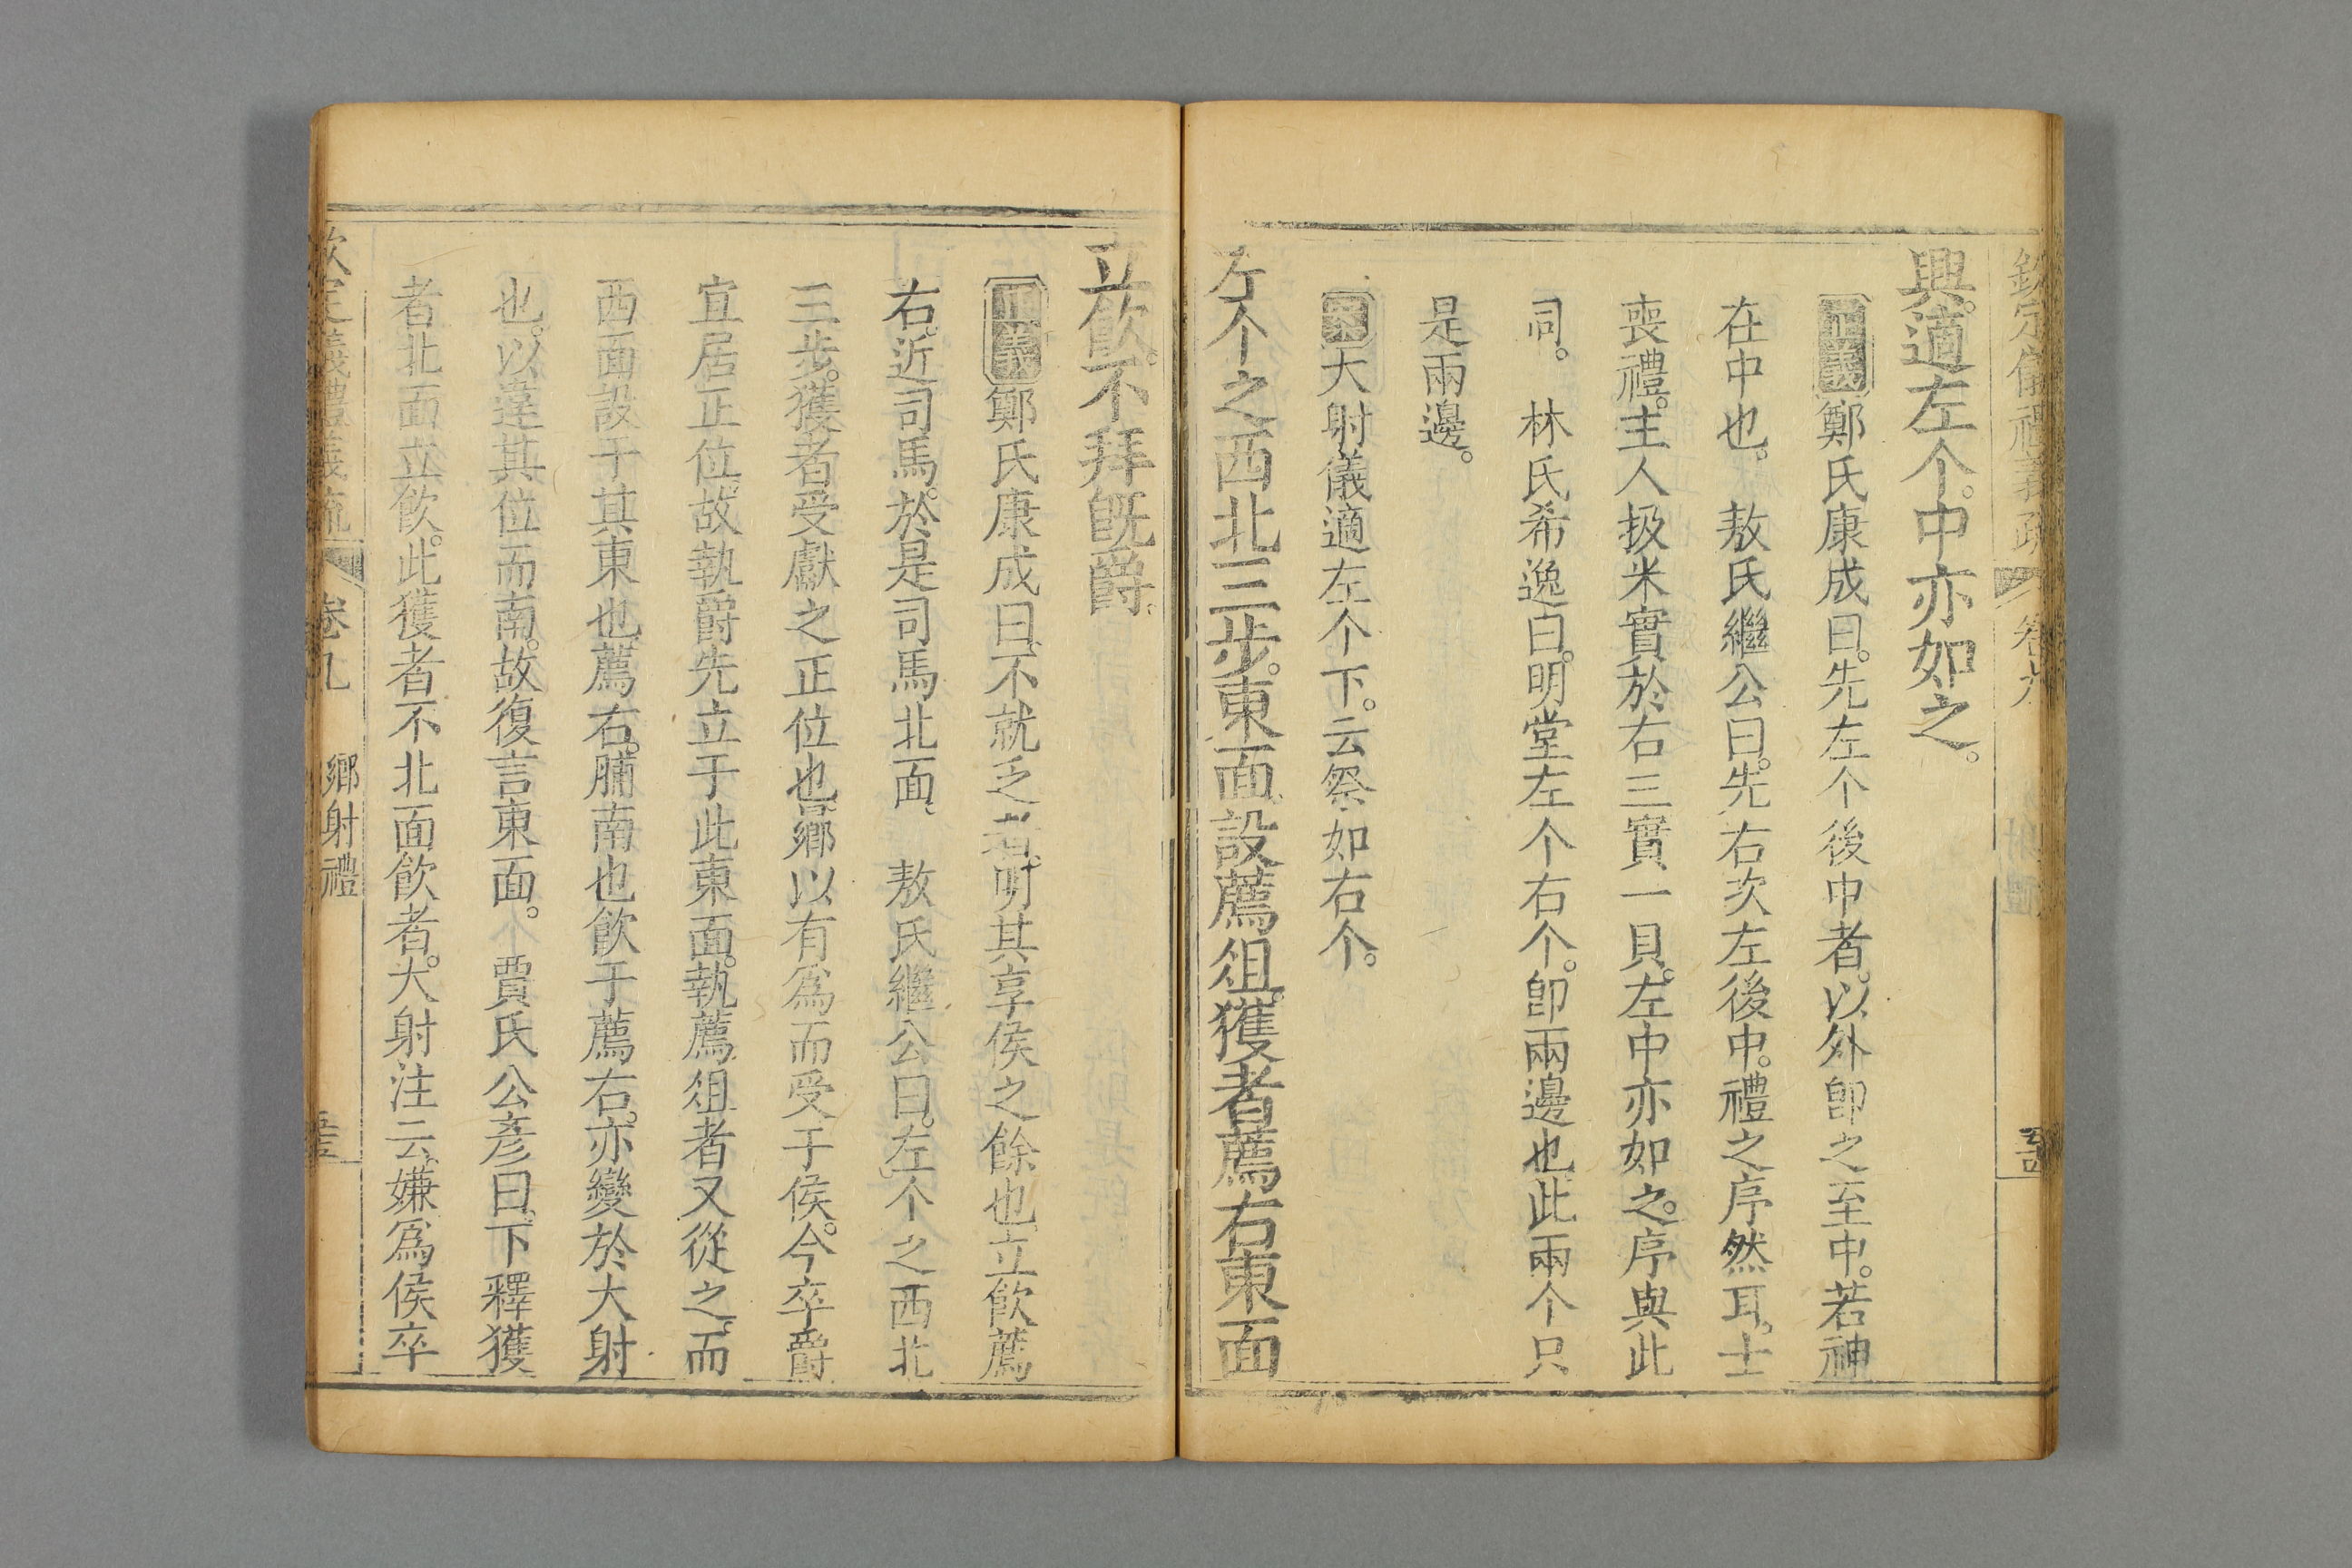 欽定儀禮義疏 卷九
興。適左个。中亦如之。
正義鄭氏康成曰。先左个後中者。以外卽之至中。若神
在中也。 敖氏繼公曰。先右次左後中。禮之序然耳。士
喪禮。主人扱米實於右三實一貝。左中亦如之。序與此
同。 林氏希逸曰。明堂左个右个。卽兩邊也。此兩个只
是兩邊。
大射儀適左个下。云祭如右个。
左个之西北三步。東面設薦俎。獲者薦右東面
立飮。不拜旣爵。
正義鄭氏康成曰。不就乏者。明其享侯之餘也。立飮薦
右。近司馬。於是司馬北面。 敖氏繼公曰。左个之西北
三步。獲者受獻之正位也。鄉以有爲而受于侯。今卒爵
宜居正位。故執爵先立于此東面。執薦俎者又從之。而
西面設于其東也。薦右。脯南也。飮于薦右。亦變於大射
也。以違其位而南。故復言東面。 賈氏公彥曰。下釋獲
者北面立飮。此獲者不北面飮者。大射注云。嫌爲侯卒
欽定儀禮義疏 卷九 鄉射禮